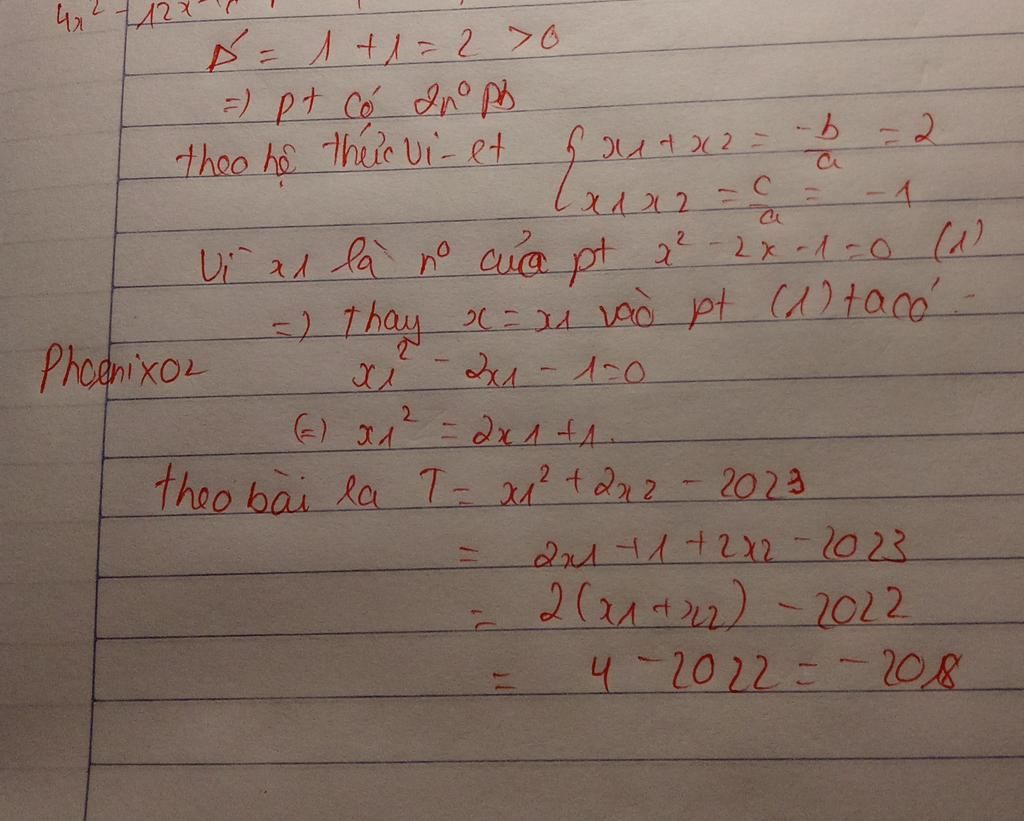 4x² - 12x
Δ' = 1 + 1 = 2 > 0
=) pt có 2n⁰ pb
theo hệ thức Vi-et { x1 + x2 = -b/a = 2
x1x2 = c/a = -1
Vì x1 là n⁰ của pt x² - 2x - 1 = 0 (1)
=) Thay x = x1 vào pt (1) ta có
Phoenix02
x1² - 2x1 - 1 = 0
(=) x1² = 2x1 + 1.
theo bài ra T = x1² + 2x2 - 2023
= 2x1 + 1 + 2x2 - 2023
= 2(x1 + x2) - 2022
= 4 - 2022 = -2018